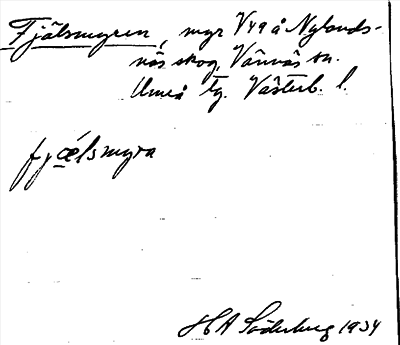 Fjälsmyren, myr V49 å Nylands-
näs skog, Vännäs sn.
Umeå tg. Västerb. l.
fjœ́lsmyra
HA Söderberg 1934